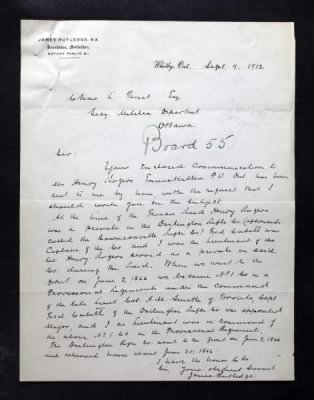 JAMES RUTLEDGE, B.A.
Barrister, Solicitor,
NOTARY PUBLIC &c.
Whitby, Ont. Sept. 9, 1912.
Esq
Secy. Militia Department
Ottawa
Board 55
Sir
Your enclosed communication to
Mr Henry Rogers Enniskillen P.O. Ont has been
sent to me by him with the request that I
should write you on the subject.
At the time of the Fenian Raid Henry Rogers
was a private in the Darlington Rifle Co (afterwards
called the Bowmanville Rifle Co) Fred Cubitt was
Captain of the Co. and I was the Lieutenant of the
Co. Henry Rogers served as a private in said
Co. during the Raid. When we went to the
front on June 2, 1866 we became No 1 Co in a
Provisional Regiment under the Command
of the late Lieut Col A.M. Smith of Toronto, Capt
Fred Cubitt of the Darlington Rifle Co was appointed
Major, and I as Lieutenant was in command of
the above No 1 Co in the Provisional Regiment.
The Darlington Rifle Co. went to the front on June 2, 1866
and returned home about June 20, 1866.
I have the honor to be
Sir, Your obedient Servant
James Rutledge.